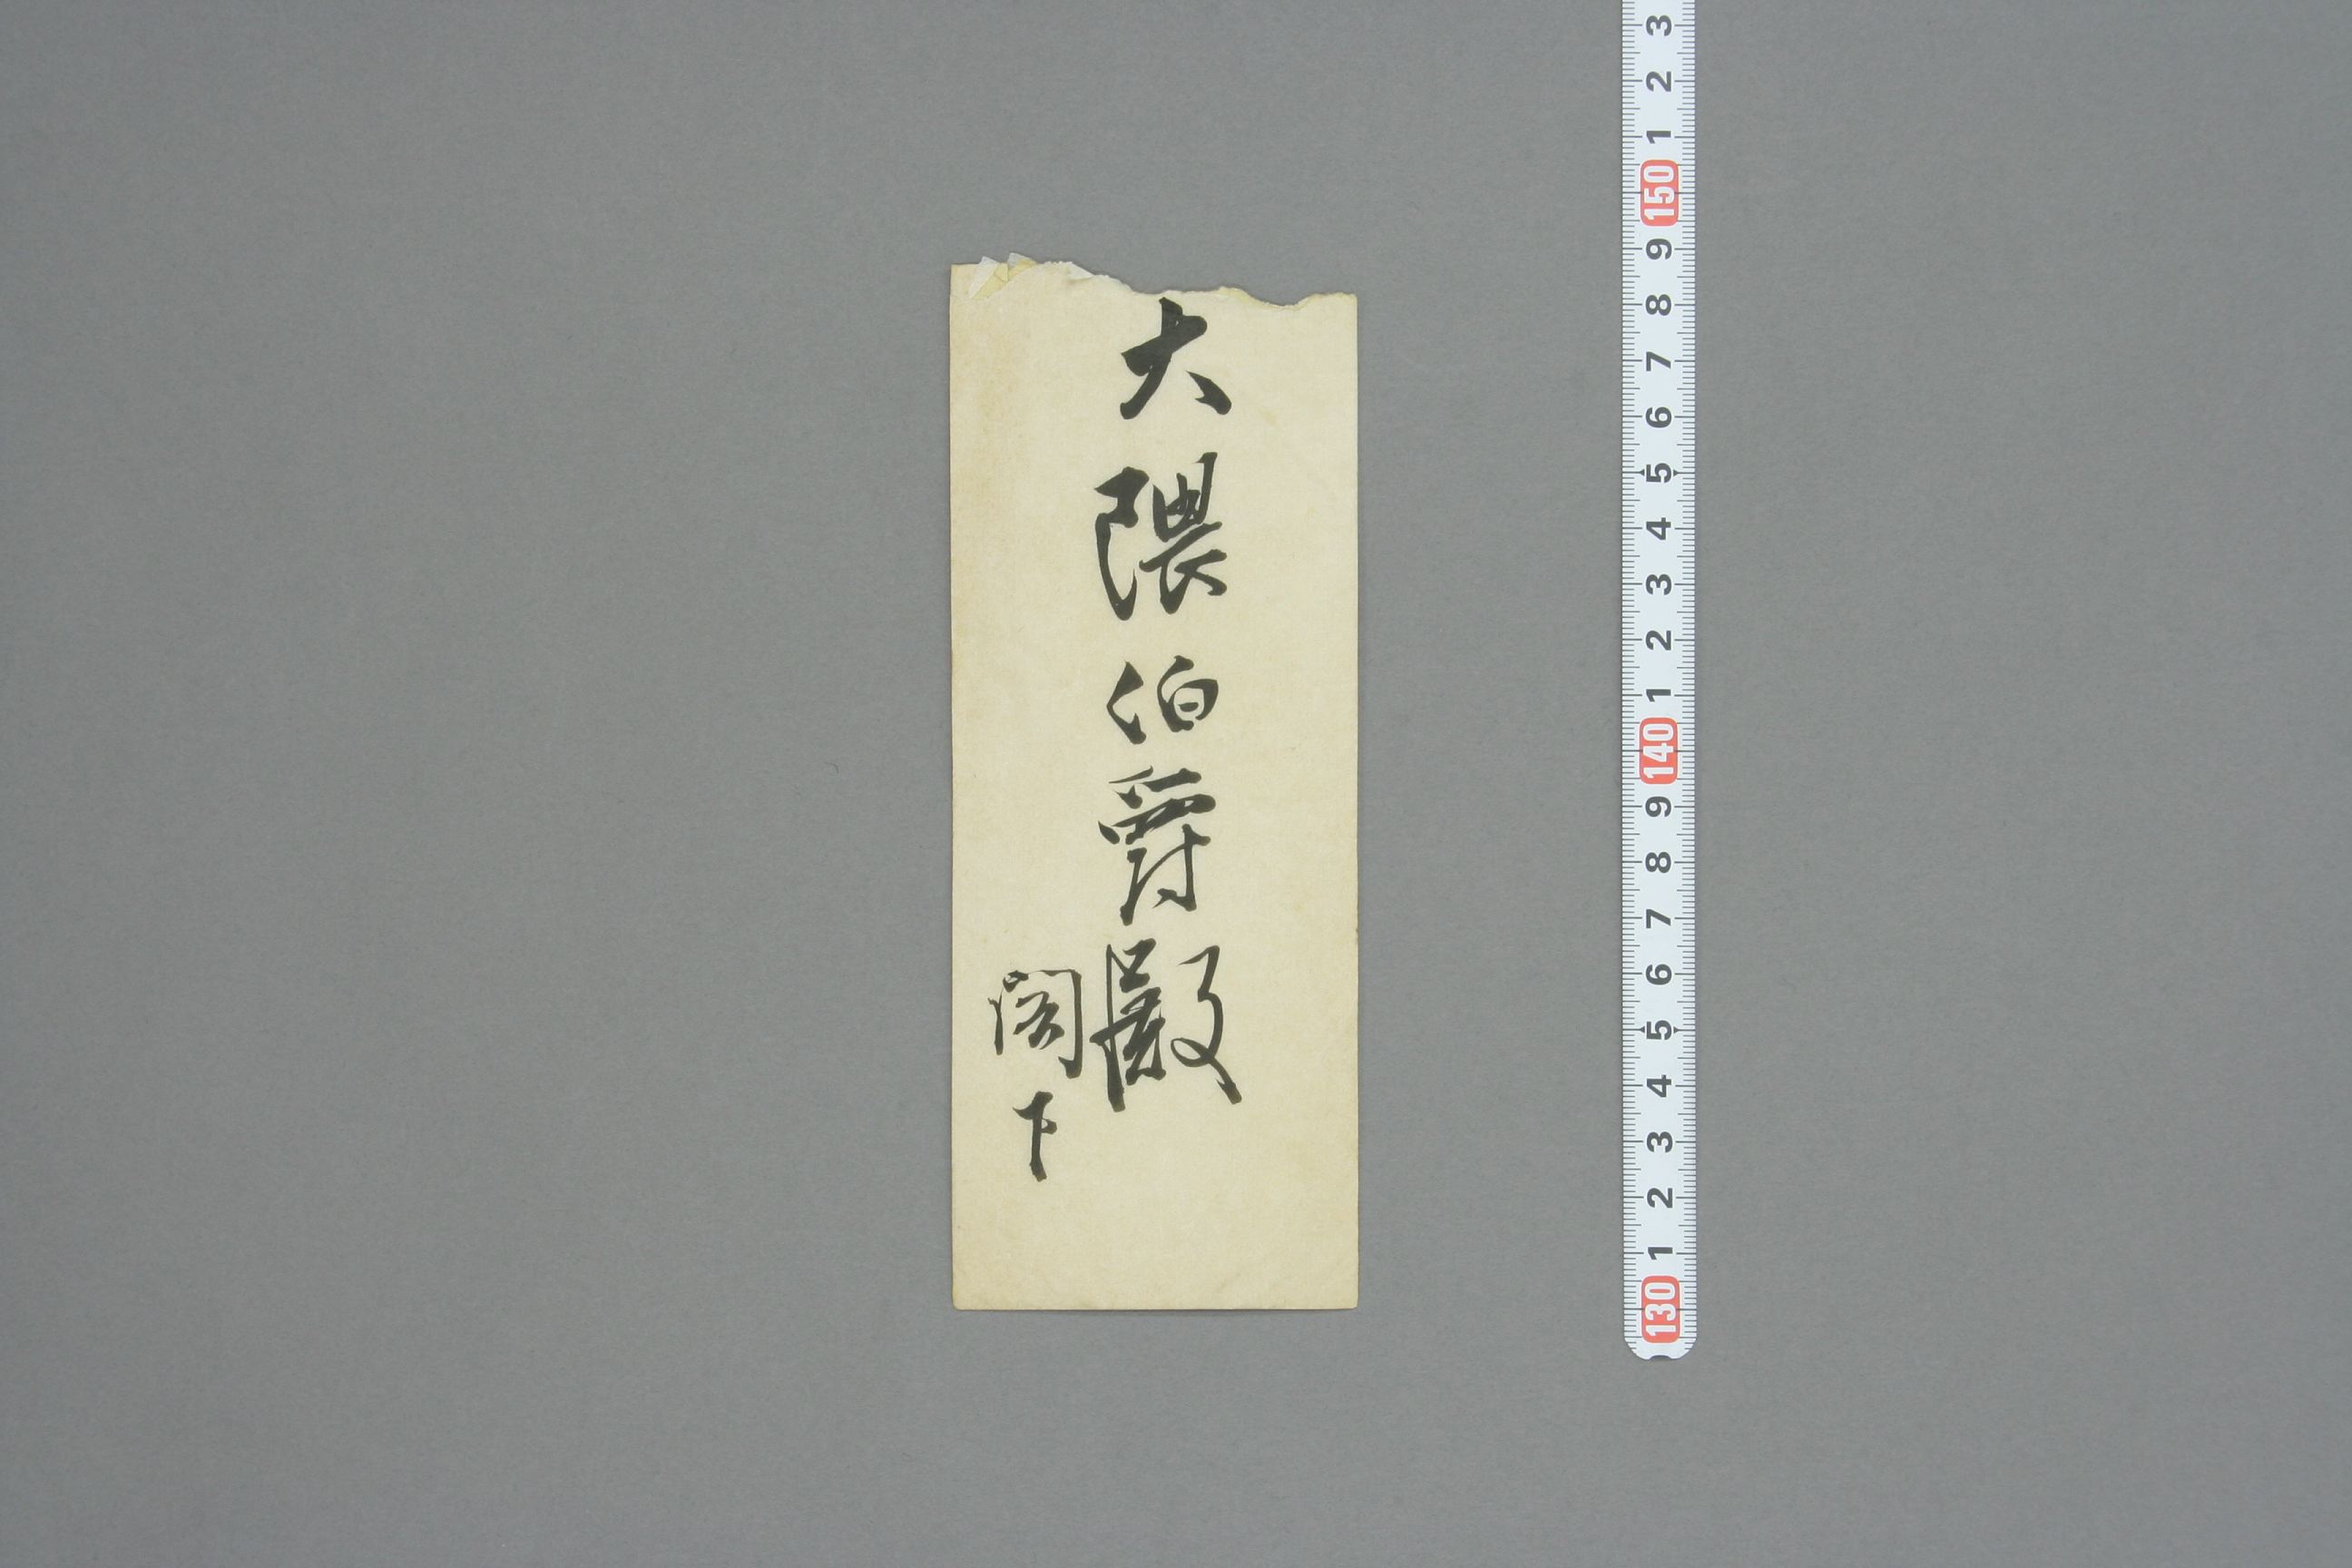 大隈伯爵殿
閣下
3
2
1
150
9
8
7
6
5
4
3
2
1
140
9
8
7
6
5
4
3
2
1
130